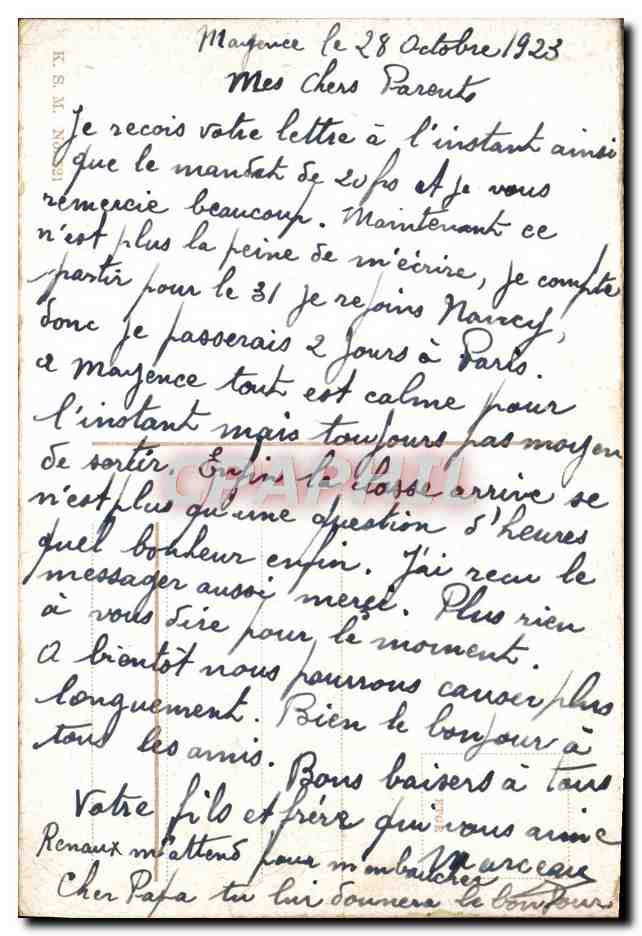 Mayence le 28 Octobre 1923
Mes Chers Parents
Je recois votre lettre à l'instant ainsi
que le mandat de 20 frs et je vous
remercie beaucoup. Maintenant ce
n'est plus la peine de m'écrire, je compte
partir pour le 31 je rejoins Nancy,
donc je passerais 2 jours à Paris.
a Mayence tout est calme pour
l'instant mais toujours pas moyen
de sortir. Enfin la classe arrive se
n'est plus qu'une question d'heures
quel bonheur enfin. J'ai recu le
messager aussi merci. Plus rien
à vous dire pour le moment.
A bientôt nous pourrons causer plus
longuement. Bien le bonjour à
tous les amis. Bons baisers à tous
Votre fils et frère qui vous aime
Marceau
Renaux m'attend pour m'embaucher
Cher Papa tu lui donnera le bonjour
K. S. M. No.
CPAPHIL